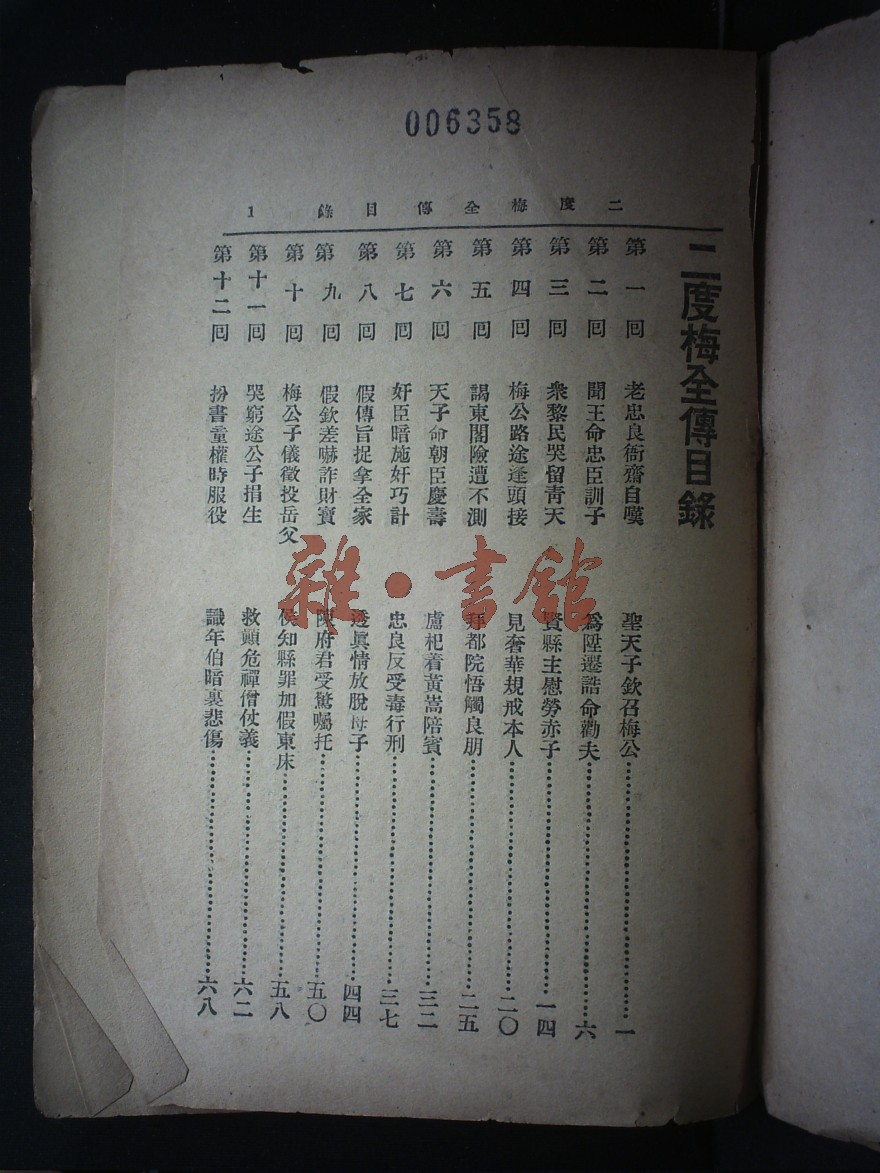 006358
二度梅全傳目錄 1
二度梅全傳目錄
第一回 老忠良衙齋自嘆 聖天子欽召梅公 一
第二回 聞王命忠臣訓子 為陞遷誥命勸夫 六
第三回 衆黎民哭留青天 賢縣主慰勞赤子 一四
第四回 梅公路途逢頭接 見奢華規戒本人 二〇
第五回 謁東閣險遭不測 拜都院悟觸良朋 二五
第六回 天子命朝臣慶壽 盧杞着黃嵩陪賓 三二
第七回 奸臣暗施奸巧計 忠良反受毒行刑 三七
第八回 假傳旨捉拿全家 透眞情放脫母子 四四
第九回 假欽差嚇詐財寶 陳府君受驚囑托 五〇
第十回 梅公子儀徵投岳父 侯知縣罪加假東床 五八
第十一回 哭窮途公子捐生 救顛危禪僧仗義 六二
第十二回 扮書童權時服役 識年伯暗裏悲傷 六八
雜·書館